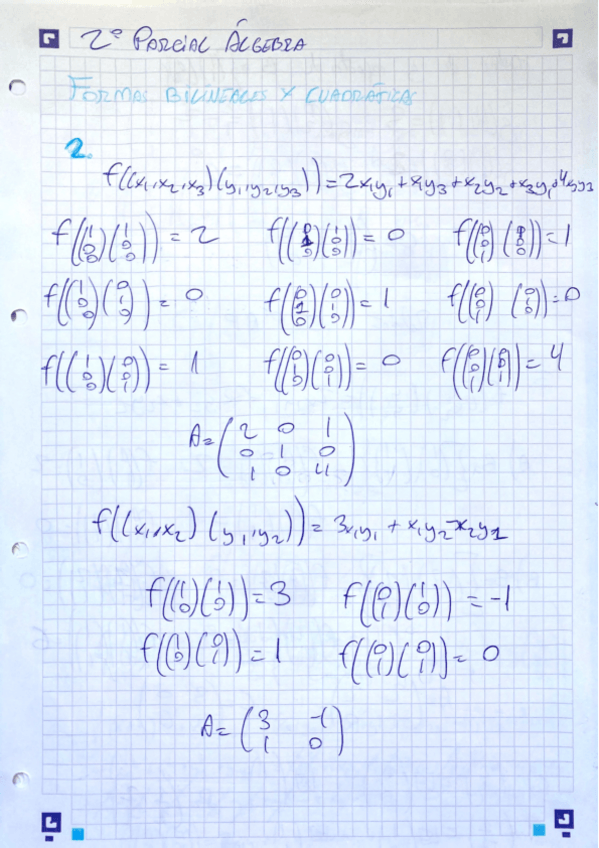 2º PARCIAL ÁLGEBRA
FORMAS BILINEALES Y CUADRÁTICAS
2.
f((x₁,x₂,x₃)(y₁,y₂,y₃)) = 2x₁y₁+x₁y₃+x₂y₂+x₃y₁+4x₃y₃
f((1 0 0)(1 0 0)) = 2 f((0 1 0)(1 0 0)) = 0 f((0 0 1)(1 0 0)) = 1
f((1 0 0)(0 1 0)) = 0 f((0 1 0)(0 1 0)) = 1 f((0 0 1)(0 1 0)) = 0
f((1 0 0)(0 0 1)) = 1 f((0 1 0)(0 0 1)) = 0 f((0 0 1)(0 0 1)) = 4
A = (2 0 1
0 1 0
1 0 4)
f((x₁,x₂)(y₁,y₂)) = 3x₁y₁ + x₁y₂ - x₂y₁
f((1 0)(1 0)) = 3 f((0 1)(1 0)) = -1
f((1 0)(0 1)) = 1 f((0 1)(0 1)) = 0
A = (3 -1
1 0)